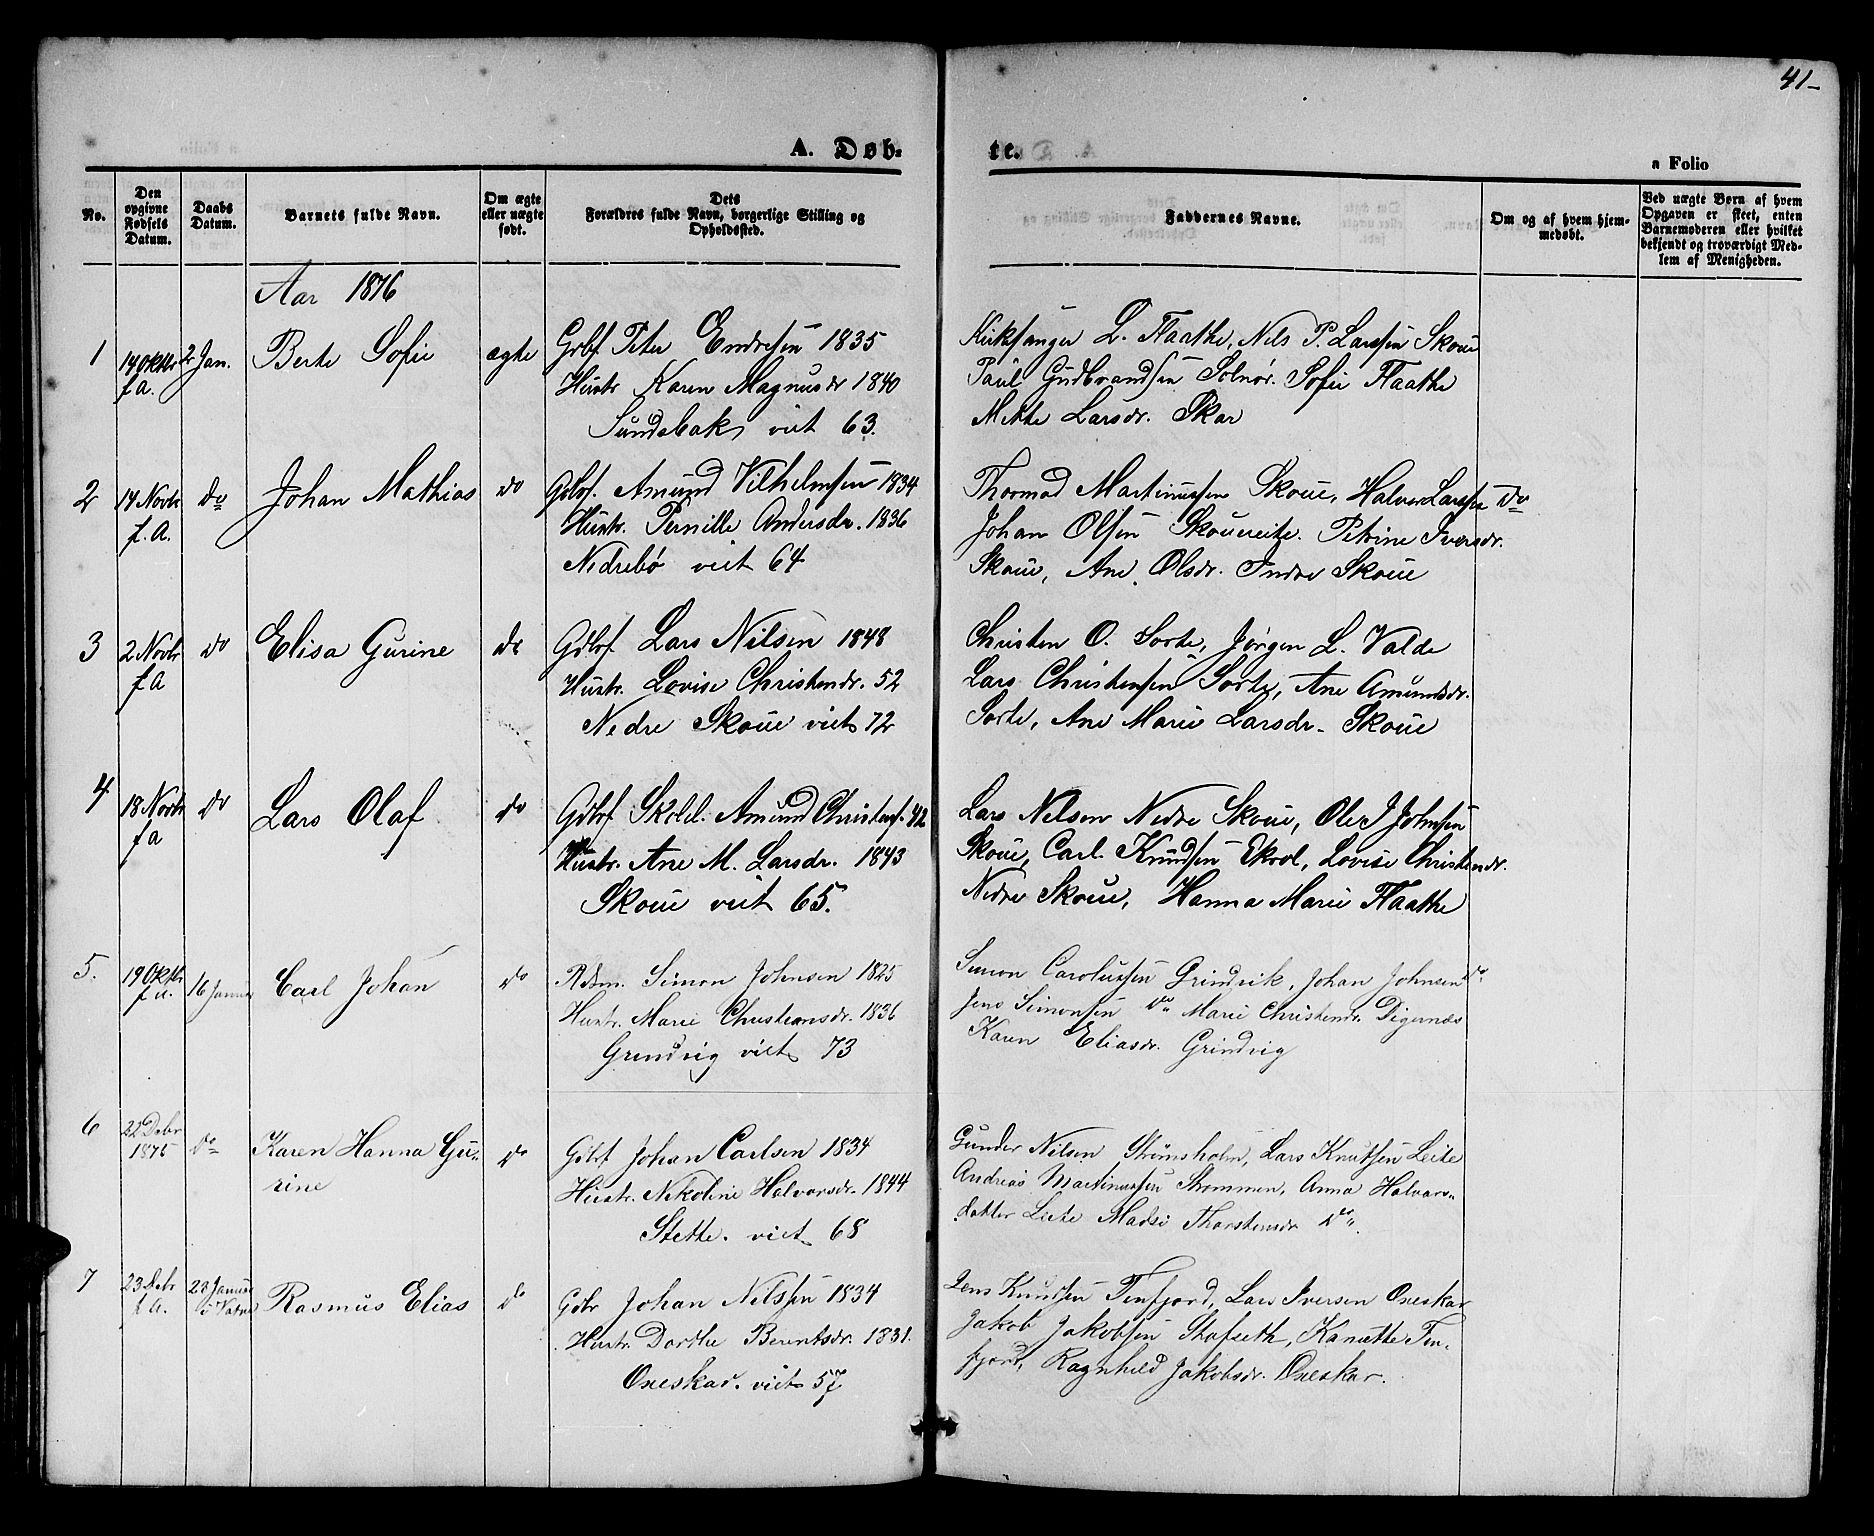 41-
A. Døb-
te.
a Folio
No.
Den opgivne Fødsels Datum.
Daabs Datum.
Barnets fulde Navn.
Om ægte eller uægte født.
Dets Forældres fulde Navn, borgerlige Stilling og Opholdssted.
Faddernes Navne.
Om og af hvem hjemmedøbt.
Ved uægte Børn af hvem Opgaven er skeet, enten Barnemoderen eller hvilket bekjendt og troværdigt Medlem af Menigheden.
Aar 1876
1 14 Oktbr f.a. 2 Jan. Berte Sofie ægte
Grbf Peter Endresen 1835
Hustr Karen Magnusdr 1840
Sundsbak viet 63.
Kirksanger L. Flaathe, Nils P. Larssen Skoue
Paul Gudbrandsen Solnør. Sofie Flaathe
Mette Larsdr. Skar
2 14 Novbr f.a. do Johan Mathias do
Gdbf. Amund Vilhelmsen 1834
Hustr. Pernille Andersdr. 1836
Nedrebø viet 64
Thormod Martinussen Skoue, Halvor Larssen do
Johan Olsen Skouereite. Petrine Iversdr.
Skoue, Ane Olsdr. Indre Skoue
3 2 Novbr f.a do Elisa Gurine do
Gdbf. Lars Nilsen 1848
Hustr. Lovise Christendr. 52
Nedre Skoue viet 72
Christen O. Sorte, Jørgen L. Valde
Lars Christensen Sorte, Ane Amundsdr.
Sorte, Ane Marie Larsdr. Skoue
4 18 Novbr f a do Lars Olaf do
Gdbf Skoll. Amund Christens. 42
Hustr. Ane M. Larsdr. 1843
Skoue viet 65.
Lars Nilsen Nedre Skoue, Ole J Johnsen
Skoue, Carl Knudsen Ekrol, Lovise Christendr.
Nedre Skoue, Hanna Marie Flaathe
5. 19 Oktbr f.a. 16 Januar Carl Johan do
Rdm. Simon Johnsen 1825
Hustr. Marie Christensdr. 1836
Grindvig viet 73
Simon Carolussen Grindvik, Johan Johnsen do
Jens Simonsen do Marie Christendr. Digernæs
Karen Eliasdr. Grindvig
6 22 Debr 1875 do Karen Hanna Gu-
rine do
Gdbf Johan Carlsen 1834
Hustr. Nikoline Halvorsdr. 1844
Stette. viet 68
Gunder Nilsen Strømsholm, Lars Knutsen Leite
Andreas Martinussen Strommen, Anna Halvors-
datter Leite Madsi Thorstensdr do.
7 23 Debr f.a. 23 Januar i Vatne Rasmus Elias do
Gdbr Johan Nilssen 1834
Hustr. Dorthe Berentsdr. 1831.
Oneskar. viet 57
Jens Knudsen Tenfjord, Lars Iversen Oneskar
Jakob Jakobsen Stafseth, Kanutte Ten-
fjord, Ragnhild Jakobsdr. Oneskar.